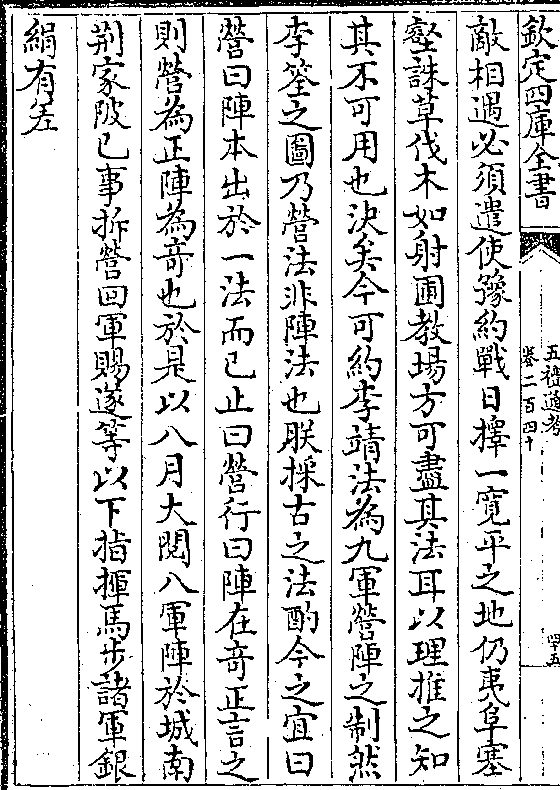 欽定四庫全書
五禮通考
卷二百四十
四十五
敵相遇必須遣使豫約戰日擇一寛平之地仍夷阜塞
壑誅草伐木如射圃教場方可盡其法耳以理推之知
其不可用也決矣今可約李靖法為九軍營陣之制然
李筌之圖乃營法非陣法也朕採古之法酌今之宜曰
營曰陣本出於一法而已止曰營行曰陣在竒正言之
則營為正陣為竒也於是以八月大閱八軍陣於城南
荆家陂已事拆營回軍賜遂等以下指揮馬步諸軍銀
絹有差